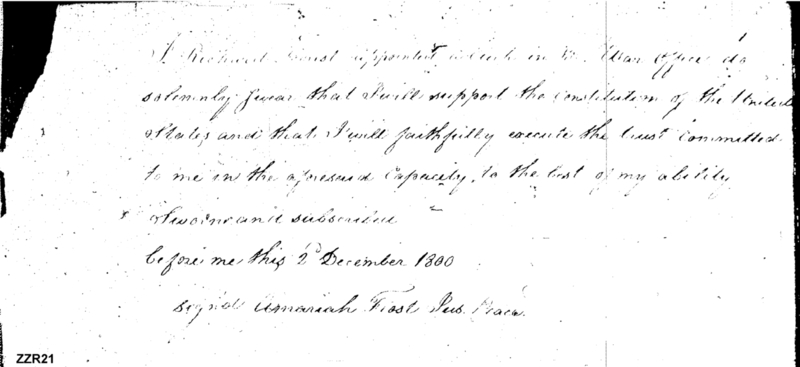 I Richard appointed a Clerk in the War Office do
solemnly swear that I will support the constitution of the United
States and that I will faithfully execute the trust committed
to me in the aforesaid Capacity, to the best of my ability
Sworn and subscribed
before me this 2d December 1800
signd Amariah Frost Jus. Peace.
ZZR21